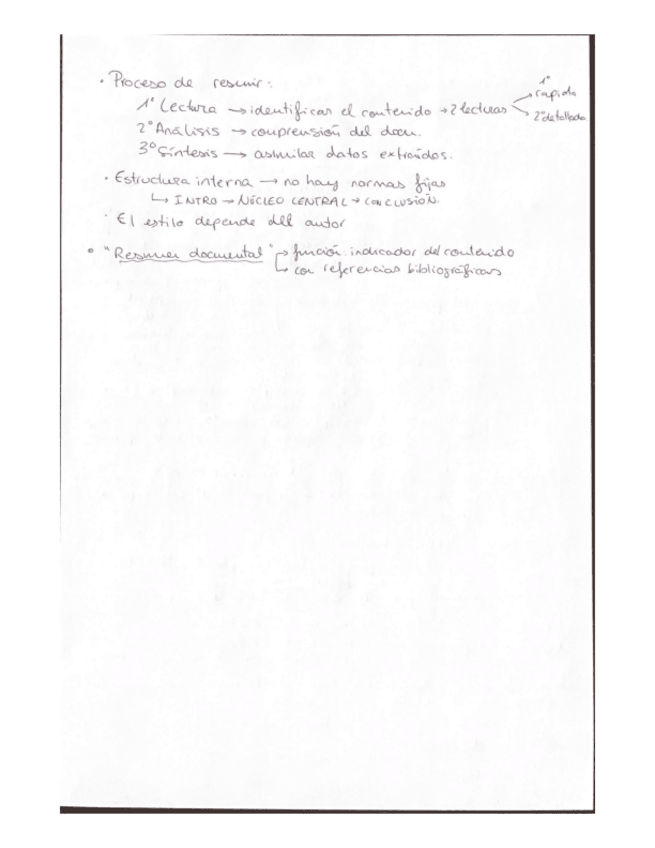 · Proceso de resumir:
1º Lectura → identificar el contenido → 2 lecturas
1º rapida
2º detallada
2º Análisis → comprensión del docu.
3º Síntesis → asimilar datos extraídos.
· Estructura interna → no hay normas fijas
↳ INTRO → NÚCLEO CENTRAL → CONCLUSIÓN.
· El estilo depende dell autor
• "Resumen documental" → función: indicador del contenido
↳ con referencias bibliográficas